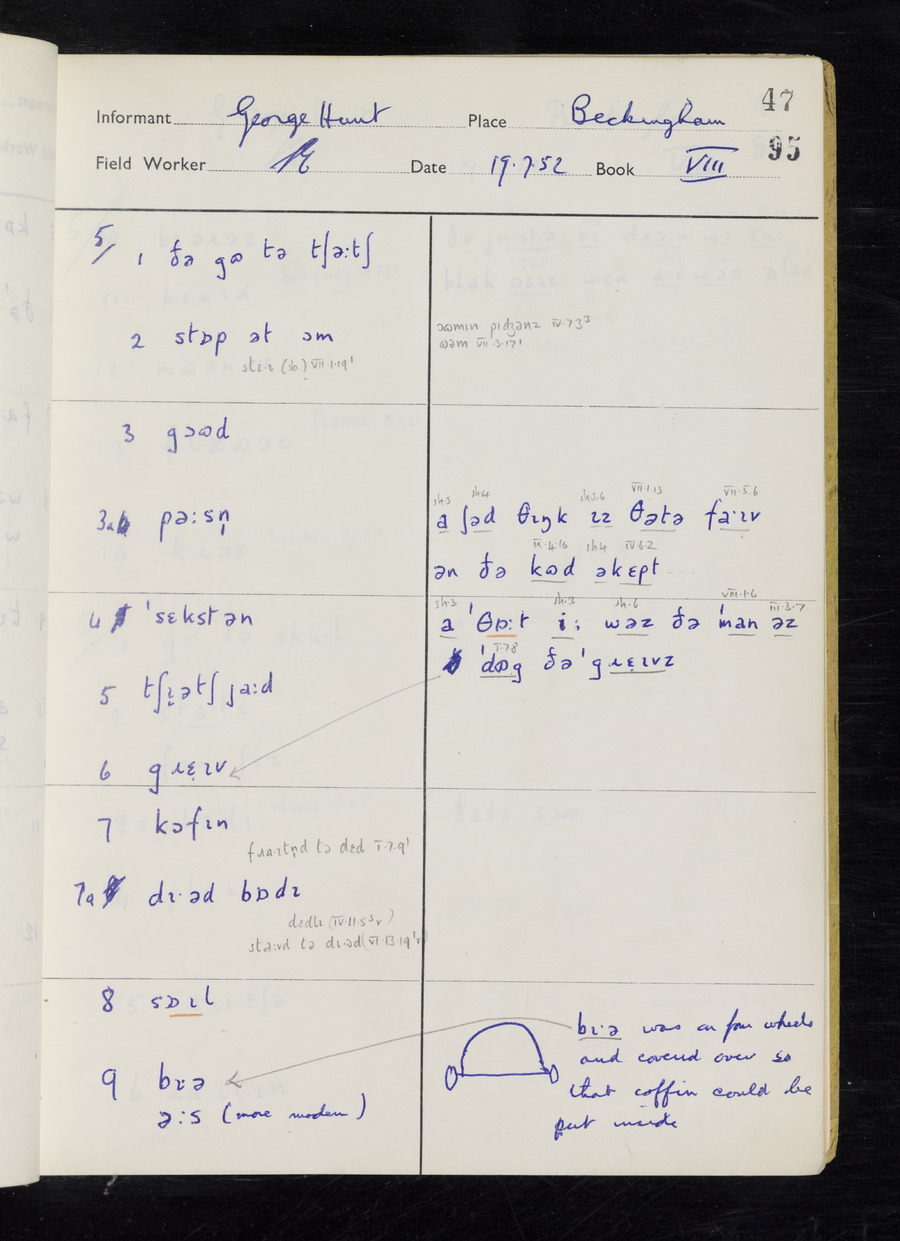 47
Informant George Hunt Place Beckingham
95
Field Worker Date 19.7.52 Book VIII
5/ 1 ðə gɷ tə tʃəːtʃ
2 stɒp ət ɔm
stɛ·ɪ (sb) VII.1.19¹
ɔɷmɪn pɪdʒənz IV.7.3³
ɷəm VII.3.17¹
3 gɔɷd
3a pəːsn̩
sh.3 sh4 sh3.6 VII.1.13 VII.5.6
a ʃəd θɪŋk ɪz θətə fa·ɪv
IX.4.16 sh4 IV.6.2
ən ðə kɷd əkɛpt
4 ˈsɛkstən
sh.3 sh.3 sh.6 VIII.1.6 III.3.7
a ˈθɒːt iː wəz ðə ˈman əz
I.7.8
ˈdɷg ðə ˈgɹɛ̣ɪvz
5 tʃɪ̣ətʃ jaːd
6 gɹɛ̣ɪv
7 kɔfɪn
fɹa·ɪtn̩d tə dɛd I.7.9¹
7a dɪ·əd bɒdɪ
dɛdlɪ (IV.11.5³r)
staːvd tə dɪ·əd (VI.13.19¹r)
8 sɒɪl
9 bɪə
əːs (more modern)
bɪ·ə was on four wheels
and covered over so
that coffin could be
put inside